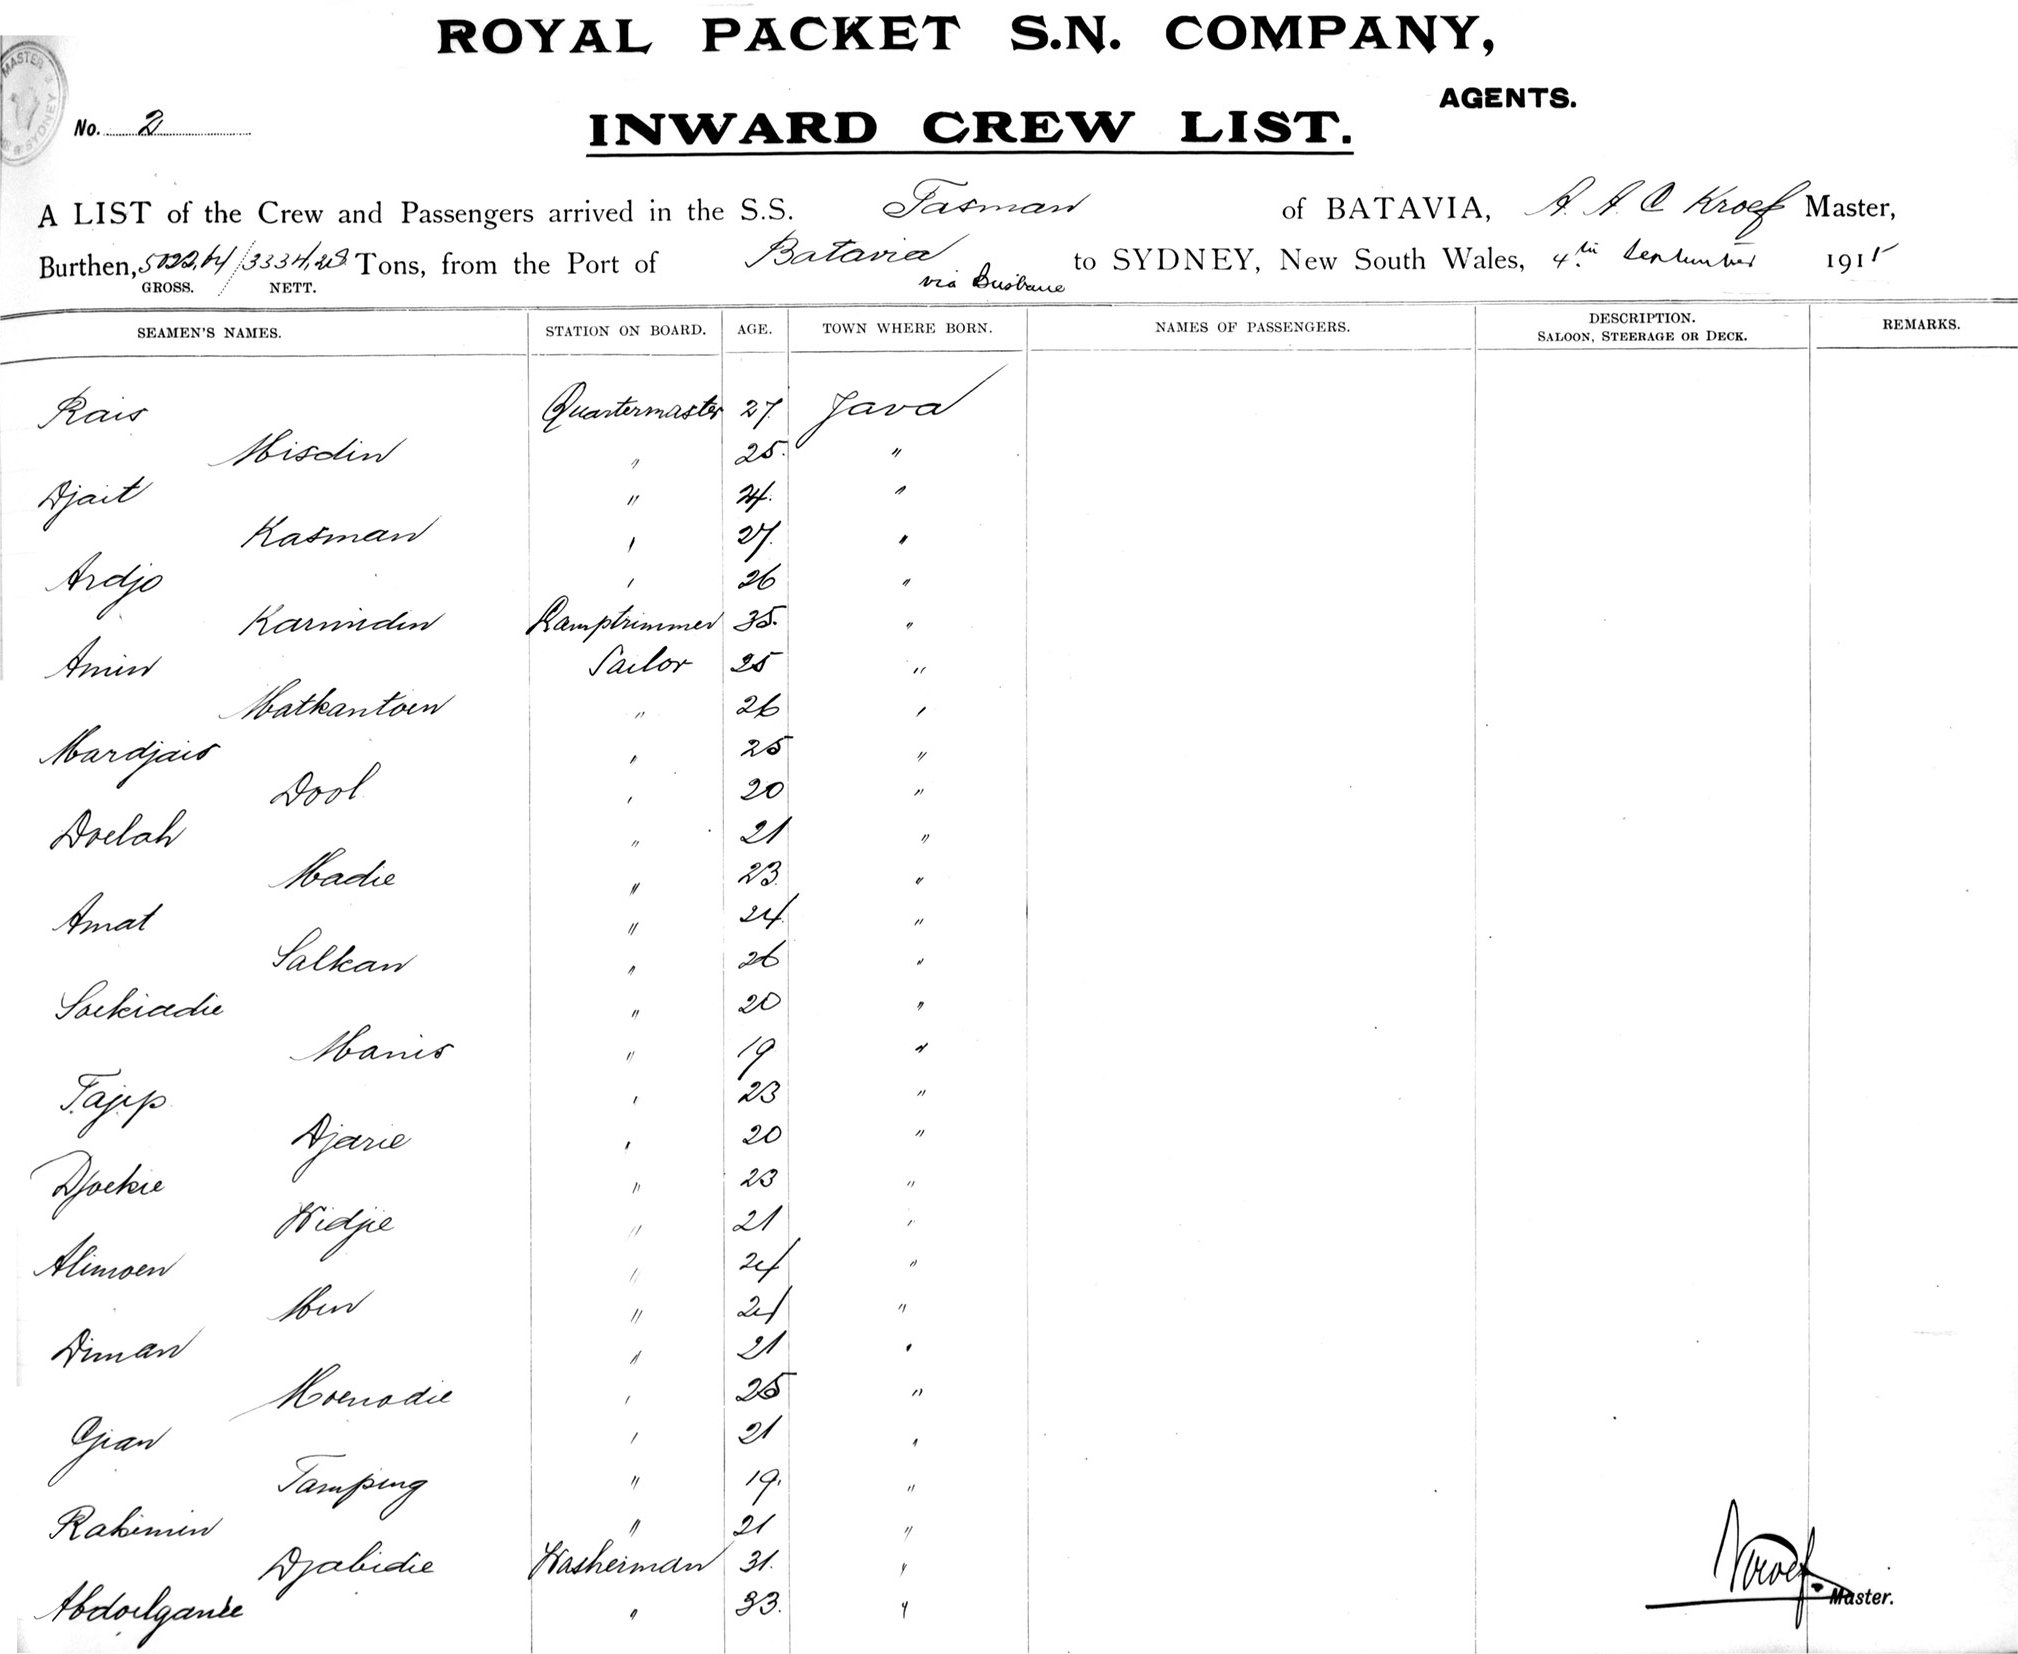 ROYAL PACKET S.N. COMPANY,
AGENTS.
MASTER
SYDNEY
No. 2
INWARD CREW LIST.
A LIST of the Crew and Passengers arrived in the S.S. Tasman of BATAVIA, A. A. C Kroef Master,
Burthen, 5022,64/3334,28 Tons, from the Port of Batavia to SYDNEY, New South Wales, 4th September 1915
GROSS. NETT. via Brisbane
SEAMEN'S NAMES. STATION ON BOARD. AGE. TOWN WHERE BORN. NAMES OF PASSENGERS. DESCRIPTION. SALOON, STEERAGE OR DECK. REMARKS.
Rais Quartermaster 27 Java
Misdin " 25. "
Djait " 24. "
Kasman " 27. "
Ardjo " 26 "
Karimdin Lamptrimmer 35. "
Amin Sailor 25 "
Matkantoen " 26 "
Mardjais " 25 "
Dool " 20 "
Doelah " 21 "
Madie " 23. "
Amat " 24. "
Salkan " 26 "
Soekiadie " 20 "
Manis " 19 "
Tajip " 23 "
Djarie " 20 "
Djoekie " 23 "
Widjie " 21 "
Alimoen " 24 "
Min " 24 "
Diman " 21 "
Moenadie " 25 "
Gian " 21 "
Tamping " 19. "
Rakimin " 21 "
Djabidie Washerman 31. "
Abdoelganie " 33. "
Kroef.
Master.